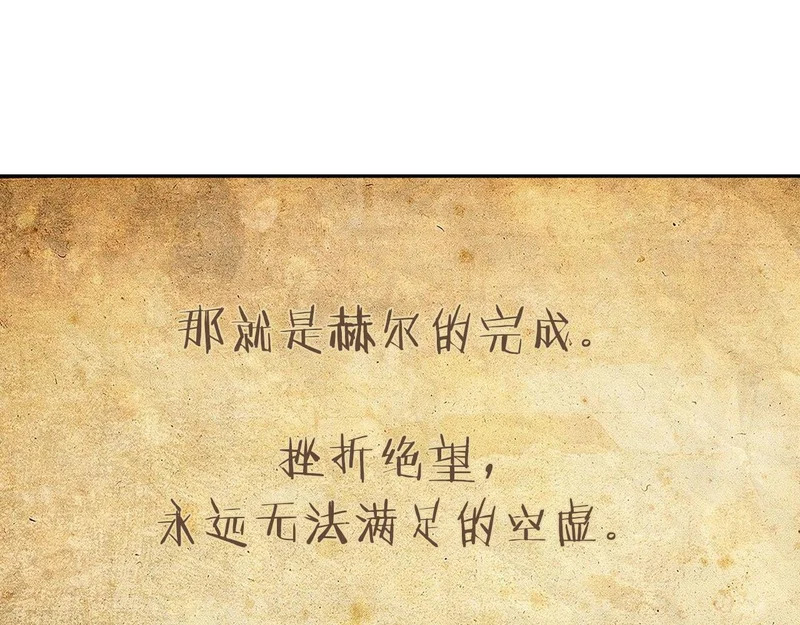 那就是赫尔的完成。
挫折绝望，
永远无法满足的空虚。